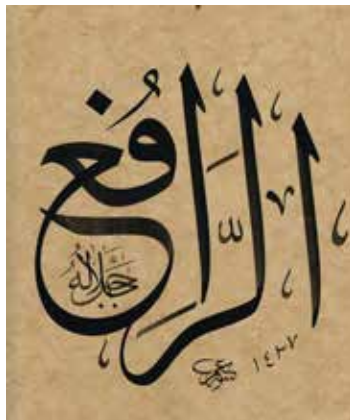 الرَّافِعُ
جَلَّ جَلَالُهُ
١٤٢٧